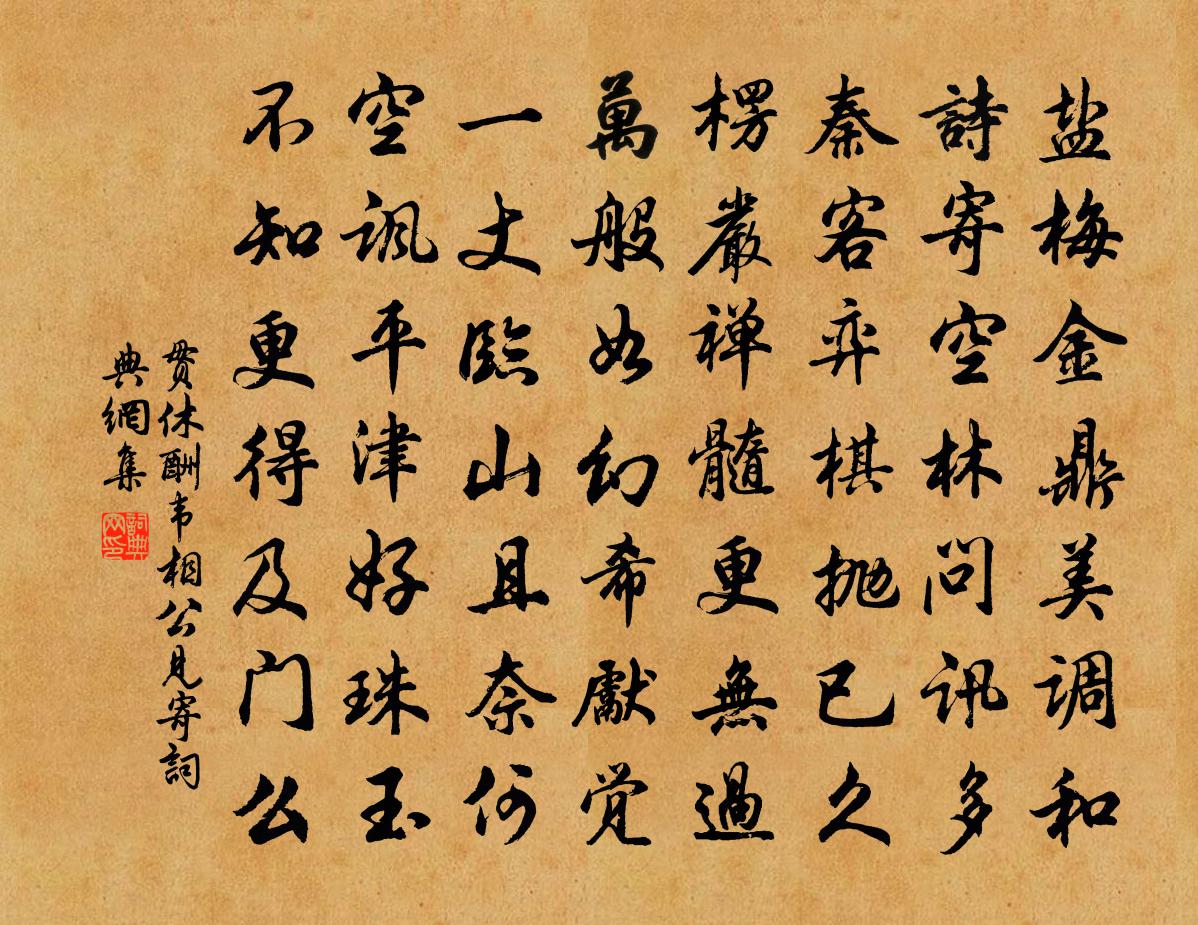 盐梅金鼎美调和
詩寄空林问讯多
秦客弈棋抛已久
楞嚴禅髓更無過
萬般如幻希獻觉
一丈臨山且奈何
空諷平津好珠玉
不知更得及门么
贯休酬韦相公见寄詞
典網集
詞典
网印